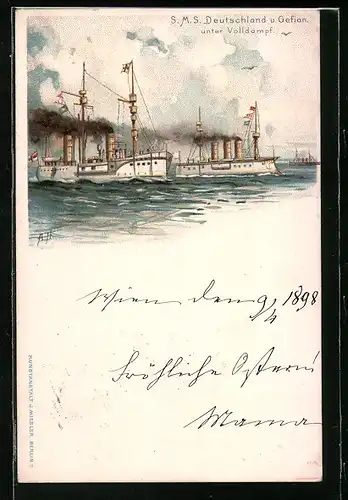 S.M.S. Deutschland u Gefion.
unter Volldampf.
Wien den 9/4 1898
Fröhliche Ostern
Mama
KUNSTANSTALT J. MIESLER, BERLIN S.